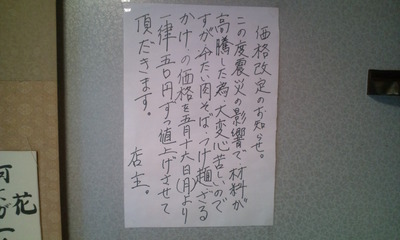 価格改定のお知らせ。
この度震災の影響で、材料が
高騰した為、大変心苦しいので
すが冷たい肉そば、つけ麺ざる
かけ、の価格を五月十六日(月)より
一律五〇円ずつ値上げさせて
頂だきます。
店主。
花